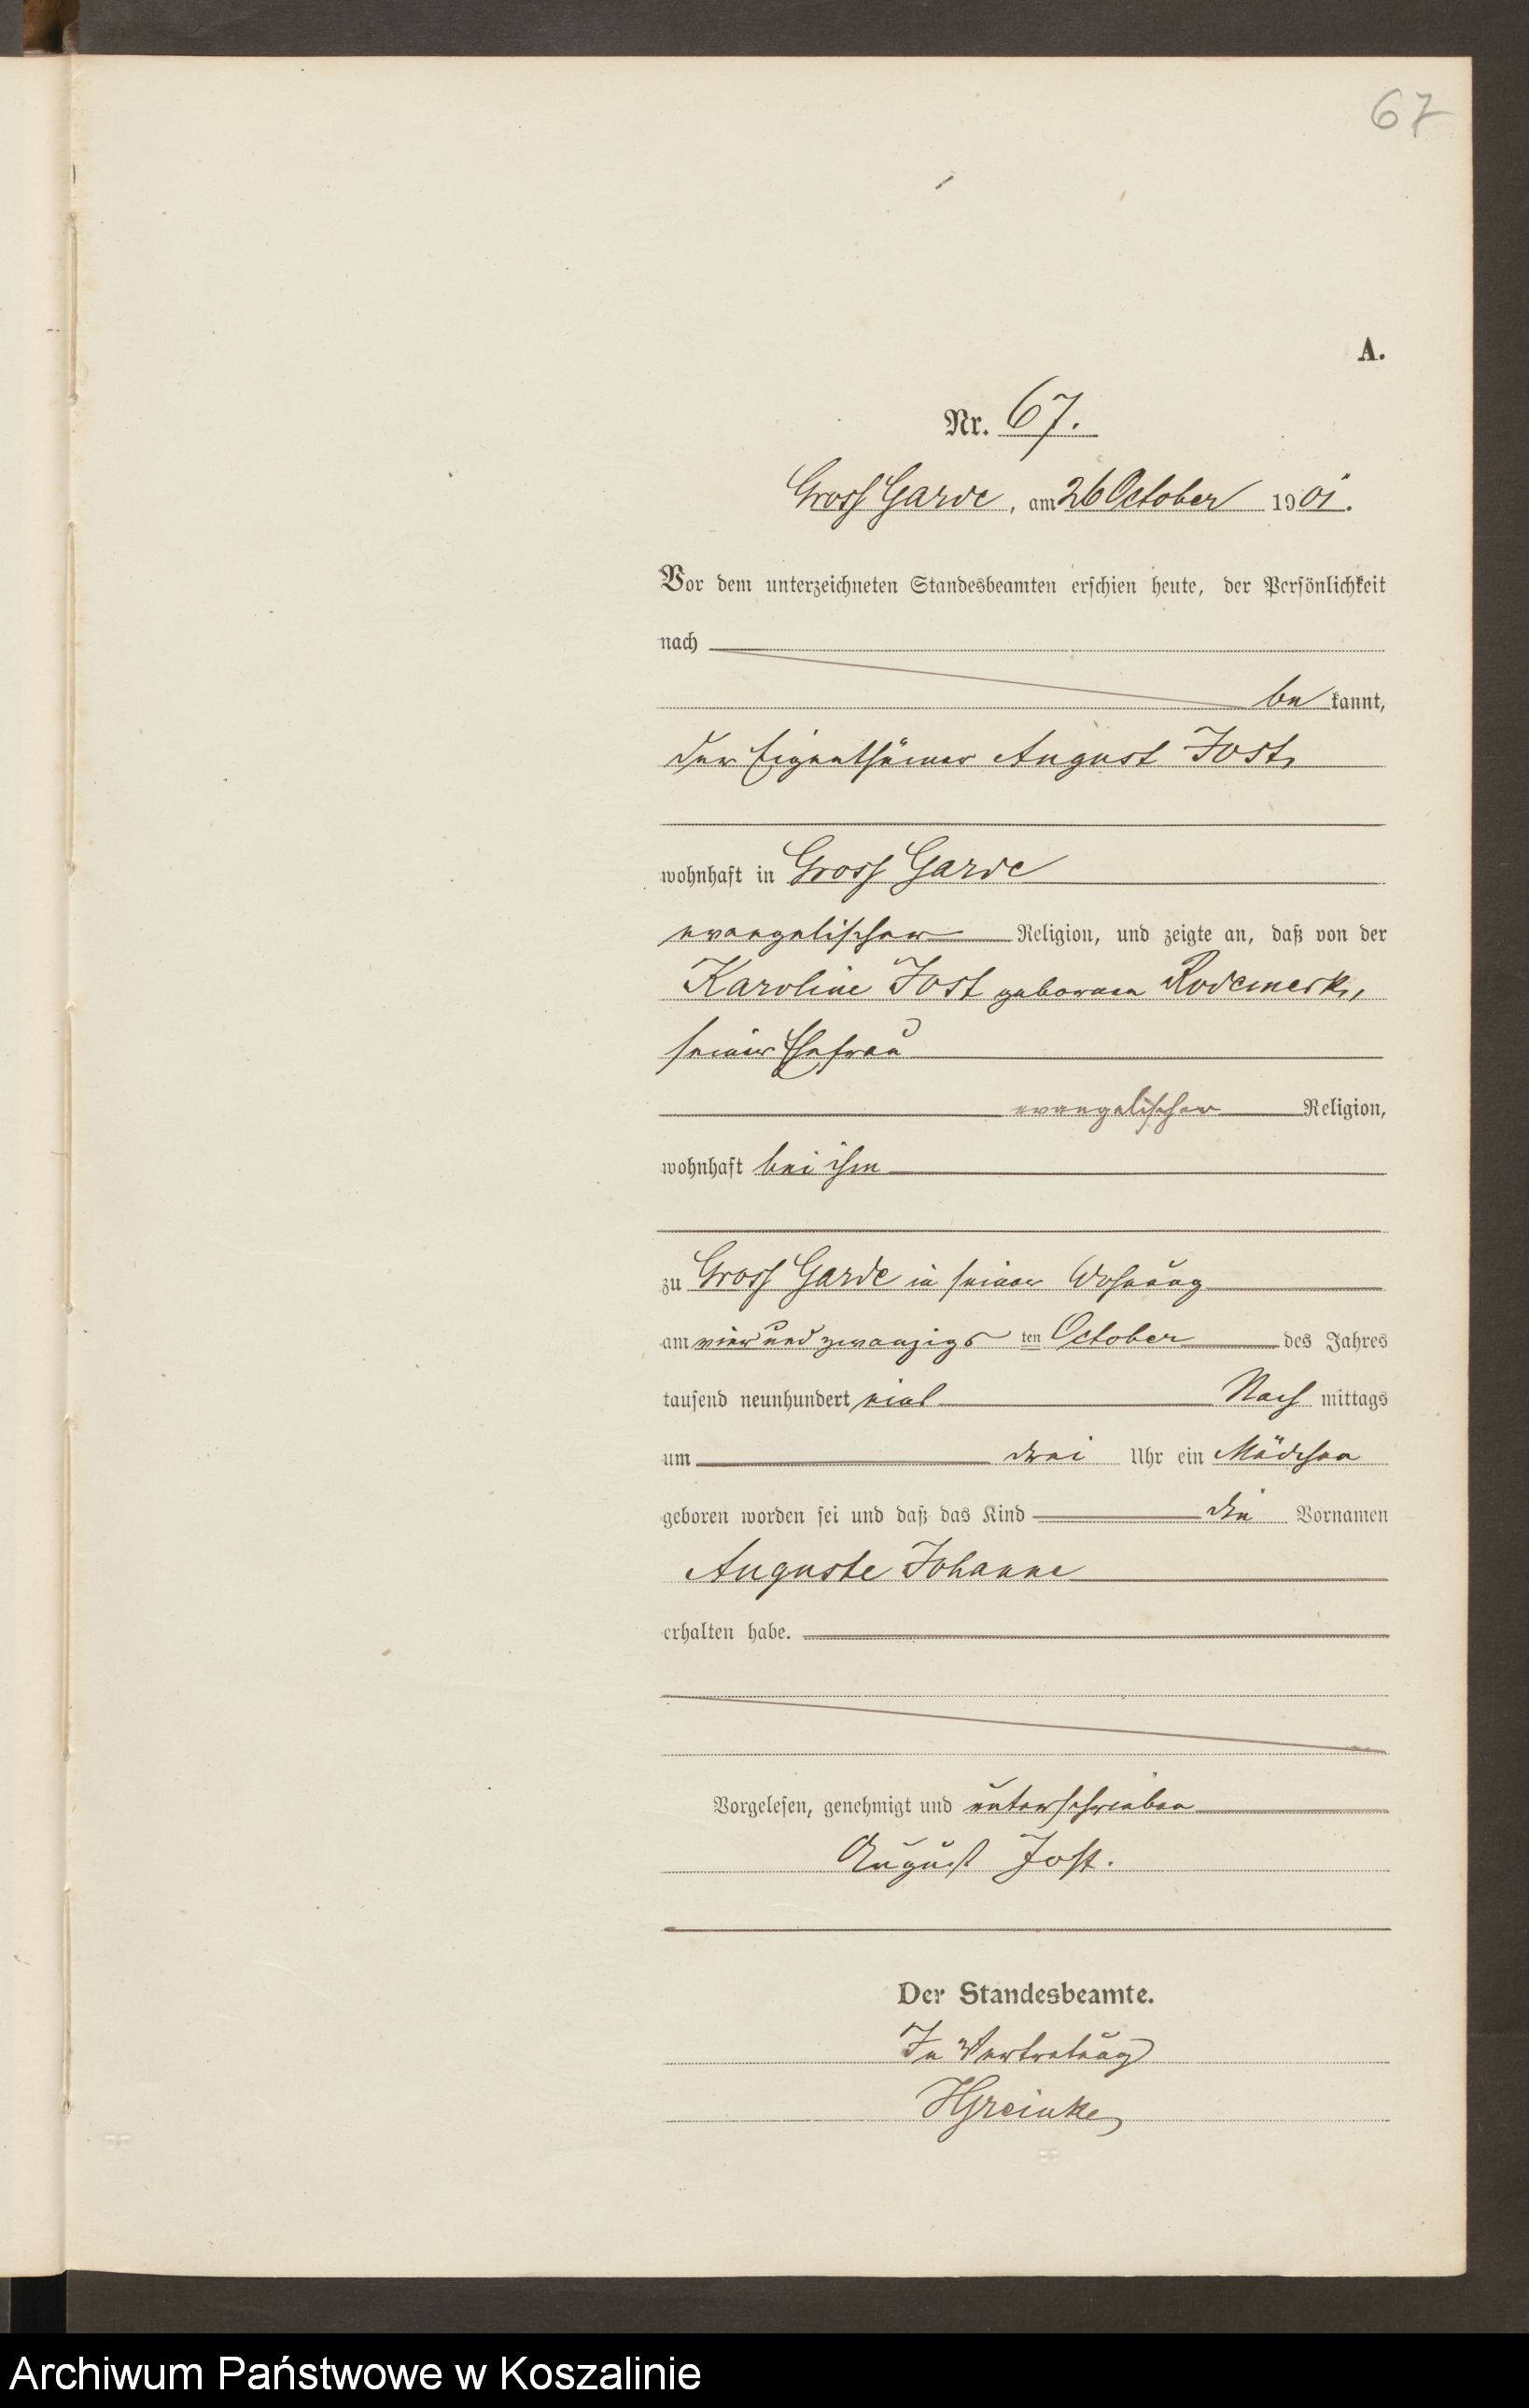 67
A.
Nr. 67.
Gross Garde, am 26 October 1901.
Vor dem unterzeichneten Standesbeamten erschien heute, der Persönlichkeit
nach
be kannt,
der Eigenthümer August Jost,
wohnhaft in Gross Garde
evangelischer Religion, und zeigte an, daß von der
Karoline Jost geborenen Rodemerk,
seiner Ehefrau
evangelischer Religion,
wohnhaft bei ihm
zu Gross Garde in seiner Wohnung
am vier und zwanzigs ten October des Jahres
tausend neunhundert eins Nach mittags
um drei Uhr ein Mädchen
geboren worden sei und daß das Kind die Vornamen
Auguste Johanne
erhalten habe.
Vorgelesen, genehmigt und unterschrieben
August Jost.
Der Standesbeamte.
In Vertretung
HGreinke
Archiwum Państwowe w Koszalinie